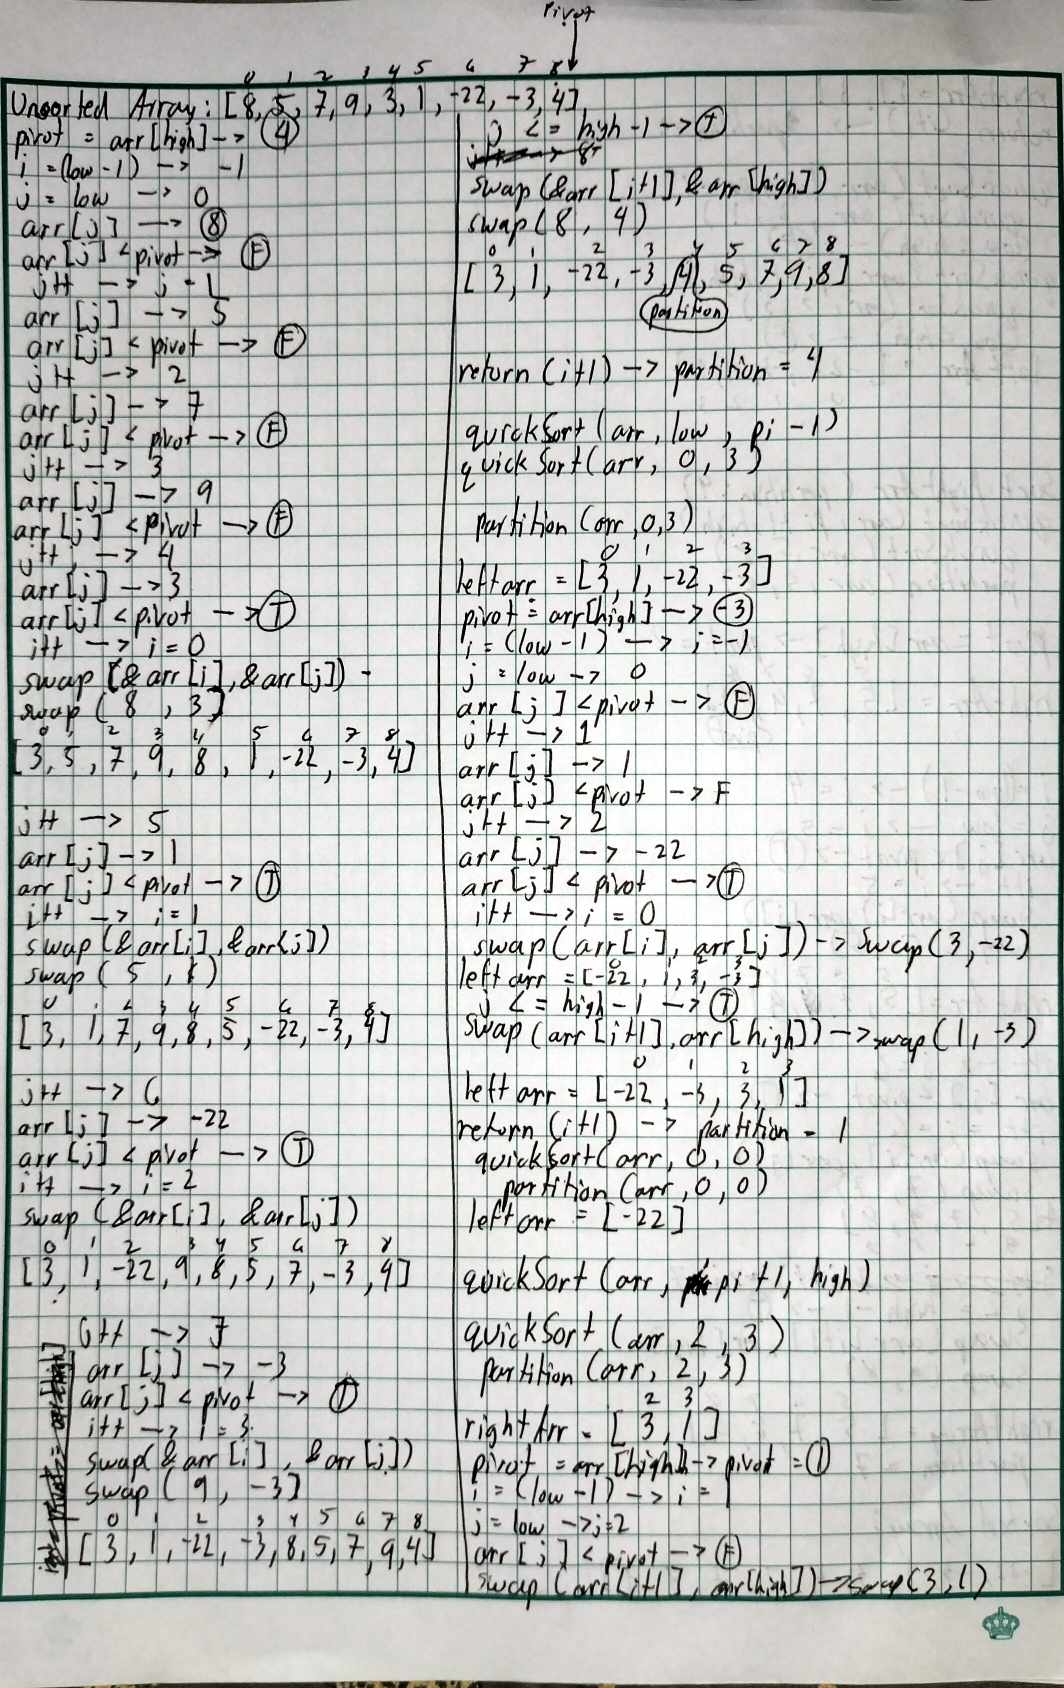 Pivot
0 1 2 3 4 5 6 7 8
Unsorted Array: [8, 5, 7, 9, 3, 1, -22, -3, 4]
pivot = arr[high] -> 4
i = (low-1) -> -1
j = low -> 0
arr[j] -> 8
arr[j] < pivot -> F
j++ -> j = 1
arr[j] -> 5
arr[j] < pivot -> F
j++ -> 2
arr[j] -> 7
arr[j] < pivot -> F
j++ -> 3
arr[j] -> 9
arr[j] < pivot -> F
j++ -> 4
arr[j] -> 3
arr[j] < pivot -> T
i++ -> i = 0
swap (&arr[i], &arr[j])
swap (8, 3)
0 1 2 3 4 5 6 7 8
[3, 5, 7, 9, 8, 1, -22, -3, 4]
j++ -> 5
arr[j] -> 1
arr[j] < pivot -> T
i++ -> i = 1
swap (&arr[i], &arr[j])
swap (5, 1)
0 1 2 3 4 5 6 7 8
[3, 1, 7, 9, 8, 5, -22, -3, 4]
j++ -> 6
arr[j] -> -22
arr[j] < pivot -> T
i++ -> i = 2
swap (&arr[i], &arr[j])
0 1 2 3 4 5 6 7 8
[3, 1, -22, 9, 8, 5, 7, -3, 4]
j++ -> 7
arr[j] -> -3
arr[j] < pivot -> T
i++ -> i = 3
swap(&arr[i], &arr[j])
swap (9, -3)
0 1 2 3 4 5 6 7 8
[3, 1, -22, -3, 8, 5, 7, 9, 4]
j <= high-1 -> T
swap (&arr[i+1], &arr[high])
swap (8, 4)
0 1 2 3 4 5 6 7 8
[3, 1, -22, -3, 4, 5, 7, 9, 8]
partition
return (i+1) -> partition = 4
quickSort (arr, low, pi-1)
quickSort(arr, 0, 3)
partition (arr, 0,3)
0 1 2 3
left arr = [3, 1, -22, -3]
pivot = arr[high] -> -3
i = (low-1) -> i = -1
j = low -> 0
arr[j] < pivot -> F
j++ -> 1
arr[j] -> 1
arr[j] < pivot -> F
j++ -> 2
arr[j] -> -22
arr[j] < pivot -> T
i++ -> i = 0
swap (arr[i], arr[j]) -> swap(3, -22)
0 2 3
left arr = [-22, 1, 3, -3]
j <= high-1 -> T
swap (arr[i+1], arr[high]) -> swap(1, -3)
0 1 2 3
left arr = [-22, -3, 3, 1]
return (i+1) -> partition = 1
quickSort(arr, 0, 0)
partition (arr, 0, 0)
left arr = [-22]
quickSort (arr, pi+1, high)
quickSort (arr, 2, 3)
partition (arr, 2, 3)
2 3
rightArr = [3, 1]
pivot = arr[high] -> pivot = 1
i = (low-1) -> i = 1
j = low -> j=2
arr[j] < pivot -> F
swap (arr[i+1], arr[high]) -> swap(3, 1)